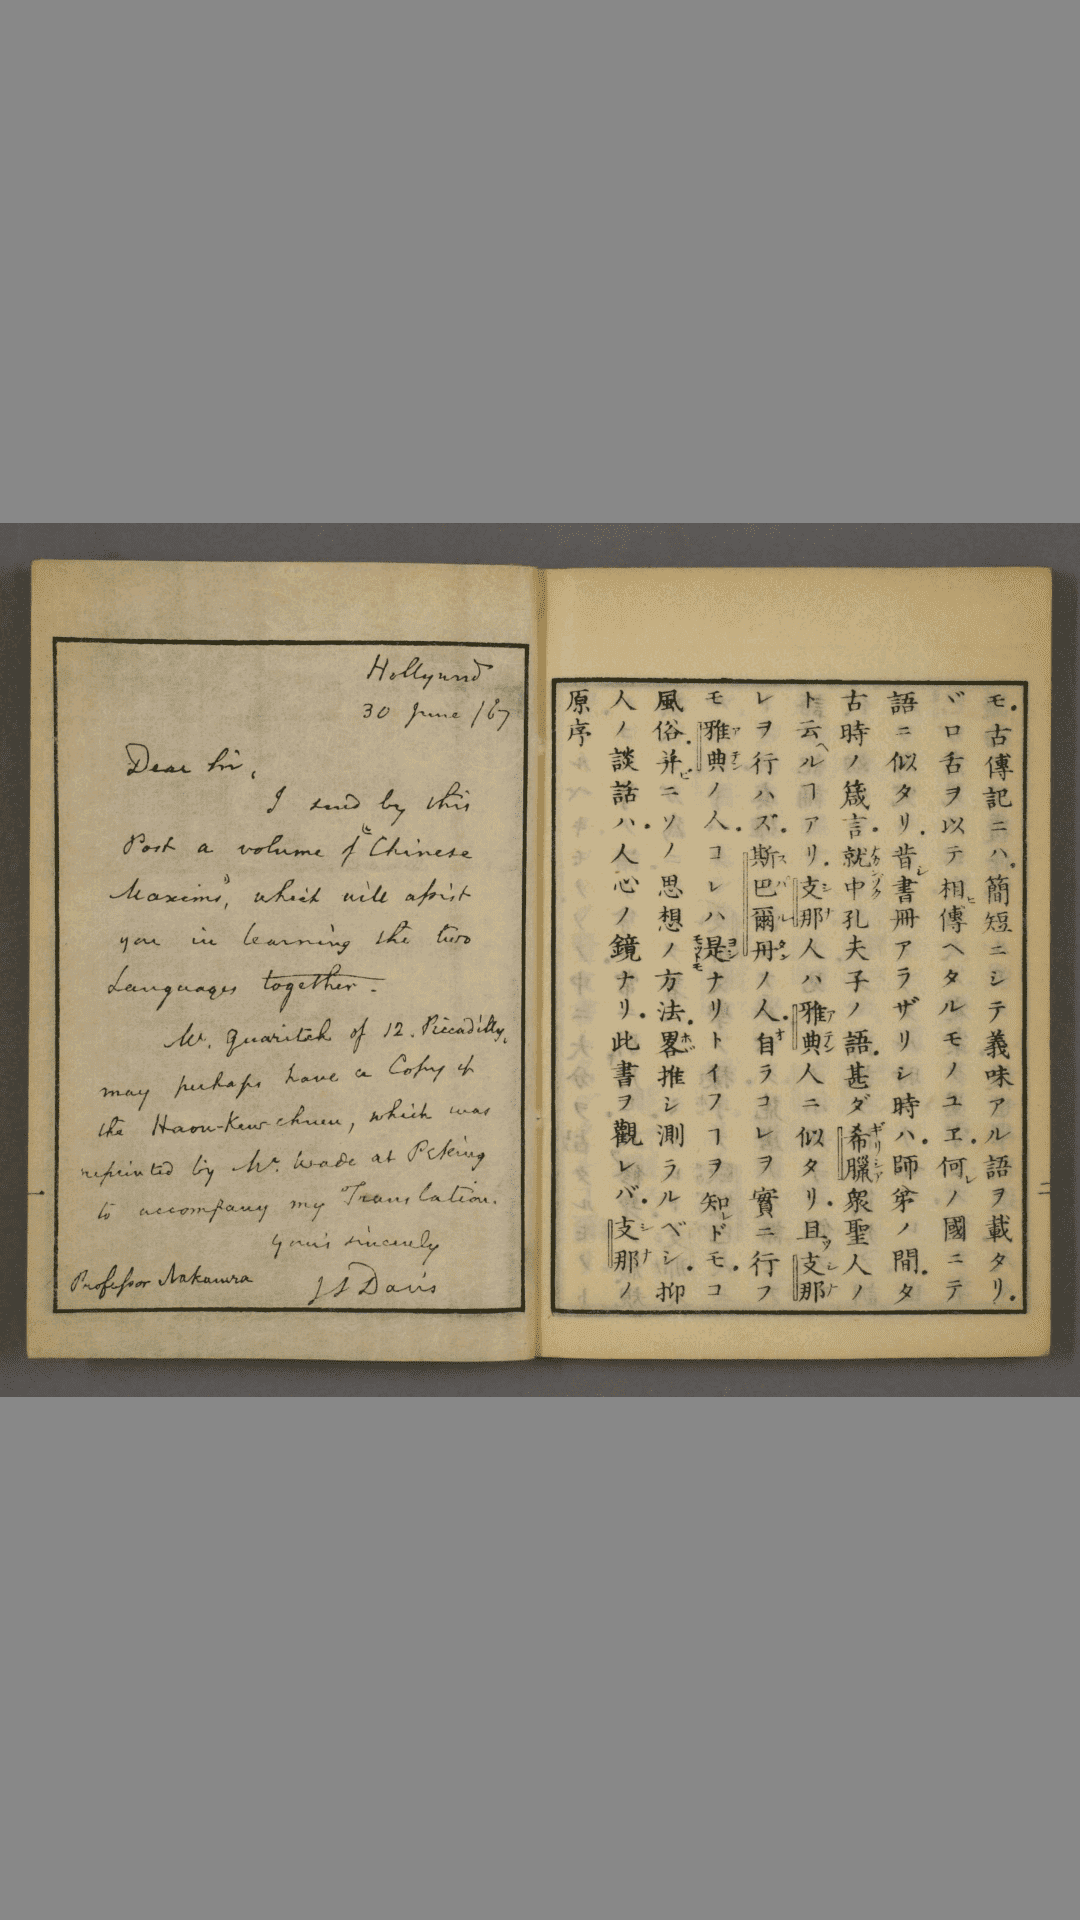 Hollywood
30 June /67
Dear Sir,
I send by this
Post a volume of "Chinese
Maxims", which will assist
you in learning the two
Languages together.
Mr. Quaritch of 12. Piccadilly,
may perhaps have a Copy of
the Haou-Kew-chuen, which was
reprinted by Mr. Wade at Peking
to accompany my Translation.
yours sincerely
J F Davis
Professor Nakamura
モ。古傳記ニハ。簡短ニシテ義味アル語ヲ載タリ。
バロ舌ヲ以テ相傳ヘタルモノユヱ。何ノ國ニテ
語ニ似タリ。昔書冊アラザリシ時ハ。師弟ノ間。タ
古時ノ箴言。就中孔夫子ノ語。甚ダ希臘衆聖人ノ
ト云ヘルヿアリ。支那人ハ雅典人ニ似タリ。且支那
レヲ行ハズ。斯巴爾丹ノ人。自ラコレヲ實ニ行フ
モ雅典ノ人。コレハ是ナリトイフヿヲ知レドモ。コ
風俗。并ニソノ思想ノ方法。畧推シ測ラルベシ。抑
人ノ談話ハ。人心ノ鏡ナリ。此書ヲ觀レバ。支那ノ
原序
二